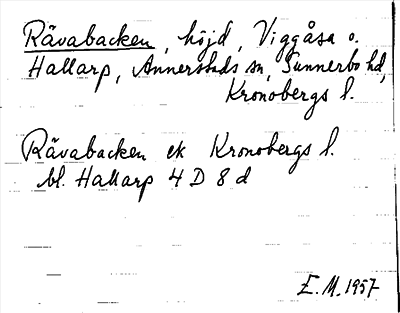 Rävabacken, höjd, Viggåsa o.
Hallarp, Annerstads sn, Sunnerbo hd,
Kronobergs l.
Rävabacken ek Kronobergs l.
bl. Hallarp 4 D 8 d
E. M. 1957